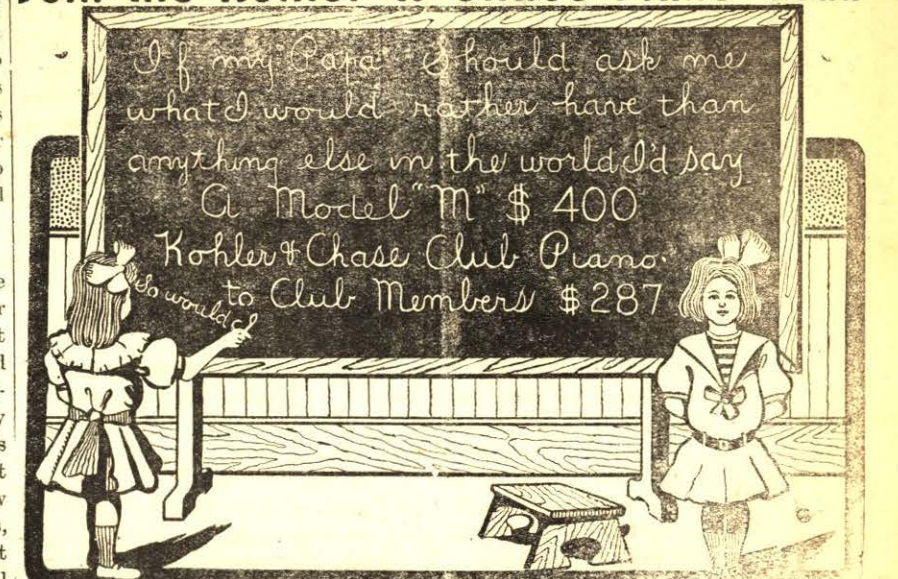 If my Papa Should ask me
what I would rather have than
anything else in the world I'd say
A Model "M" $ 400
Kohler & Chase Club Piano.
to Club Members $287
So would I